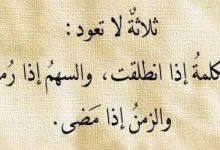 ثلاثةٌ لا تعود :
كلمةُ إذا انطلقت ، والسهمُ إذا
والزمنُ إذا مَضى .